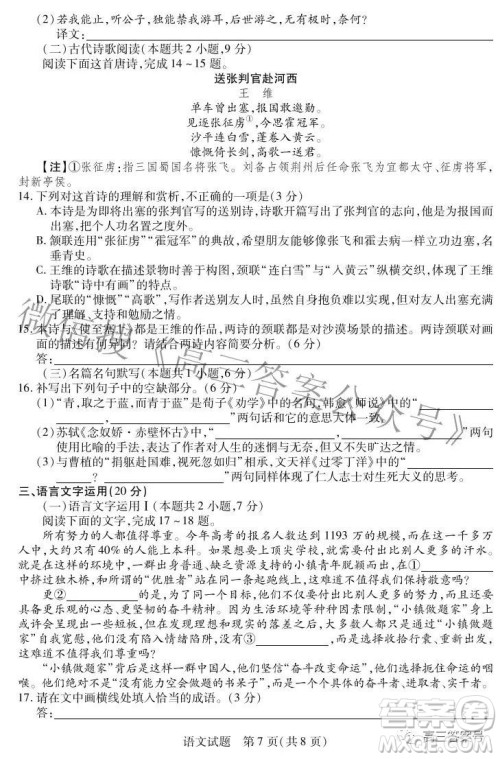 (2)若我能止,听公子,独能禁我游耳,后世游之,无有极时,奈何?
译文:
(二)古代诗歌阅读(本题共2小题,9分)
阅读下面这首唐诗,完成14~15题。
送张判官赴河西
王 维
单车曾出塞,报国敢邀勋。
见逐张征虏①,今思霍冠军。
沙平连白雪,蓬卷入黄云。
慷慨倚长剑,高歌一送君。
【注】①张征虏:指三国蜀国名将张飞。刘备占领荆州后任命张飞为宜都太守、征虏将军,
封新亭侯。
14.下列对这首诗的理解和赏析,不正确的一项是(3分)
A.本诗是为即将出塞的张判官写的送别诗,大气豪迈,首联开篇写出了张判官的志向,他是为报国而
出塞,把个人功名置之度外。
B.颔联连用“张征虏”“霍冠军”的典故,希望朋友能够像张飞和霍去病一样在边关建功立业,名
垂青史。
C.王维的诗歌在描述景物时善于构图,颈联“连白雪”与“入黄云”纵横交织,体现了王维
诗歌“诗中有画”的艺术特点。
D.尾联的“慷慨”“高歌”,可见其豪壮气概,没有一般送别诗的缠绵悱恻之感,表现了对友人的
理解、支持和勉励之情。
15.本诗与《使至塞上》都是王维的作品,两诗的颈联都是对沙漠场景的描述。两诗颈联对意
象的描述有何异同?请结合两诗内容简要分析。(6分)
答:
(三)名篇名句默写(本题共1小题,6分)
16.补写出下列句子中的空缺部分。(6分)
(1)“青,取之于蓝,而青于蓝”是荀子《劝学》中的名句,韩愈《师说》中的“
,”两句话和它的意思大体一致。
(2)苏轼《念奴娇·赤壁怀古》中,“ , ”两句
使用比喻的手法,表现作者人生迷惘的悲伤与无奈,但又不失旷达之情。
(3)与曹植的“捐躯赴国难,视死忽如归”类似,文天祥《过零丁洋》中的“
? ?”两句也表现出仁人志士对生死大义的思考。
三、语言文字运用(20分)
(一)语言文字运用Ⅰ(本题共2小题,7分)
阅读下面的文字,完成17~18题。
所有努力的人都值得尊重。今年高考的报名人数达到1193万的规模,而在这一千多万
人中,大约只有40%的人能上本科。如果想要上顶尖学校,就需要付出比别人更多更多的汗
水,在这一过程中,那些由普通、缺乏资源支持的小镇青年脱颖而出,在①
中挤过独木桥,和所谓的“优胜者”站到同一起跑线上,这难道不值得我们敬意吗?
更②的是,在追逐更好的自己的过程中,这些人要付出比别人更多的努力,要
具备更多乐观的心态、更坚韧的奋斗意志。因为生活中种种因素限制,“小镇做题家”身上
或许会呈现出一些短板,但当人们发现理想和现实的落差之后,大多数人会以“小镇做题
家”自我宽慰,他们没有陷入情绪陷阱,没有③,而是选择收拾行囊、重新出发,
这难道不值得我们尊重吗?
“小镇做题家”背后是这一群体的奋斗历程,他们坚信“奋斗改变命运”,他们最懂生活的咀
嚼。他们无非想以自己的努力换取人生的改变,他们的奋斗是最真实、最生动、最实干。
17.请在文中画横线处填入恰当的成语。(3分)
答:
语文试题 第7页(共8页)
微信搜《高三答案公众号》
答案圈
高三答案号
MXQE.COM